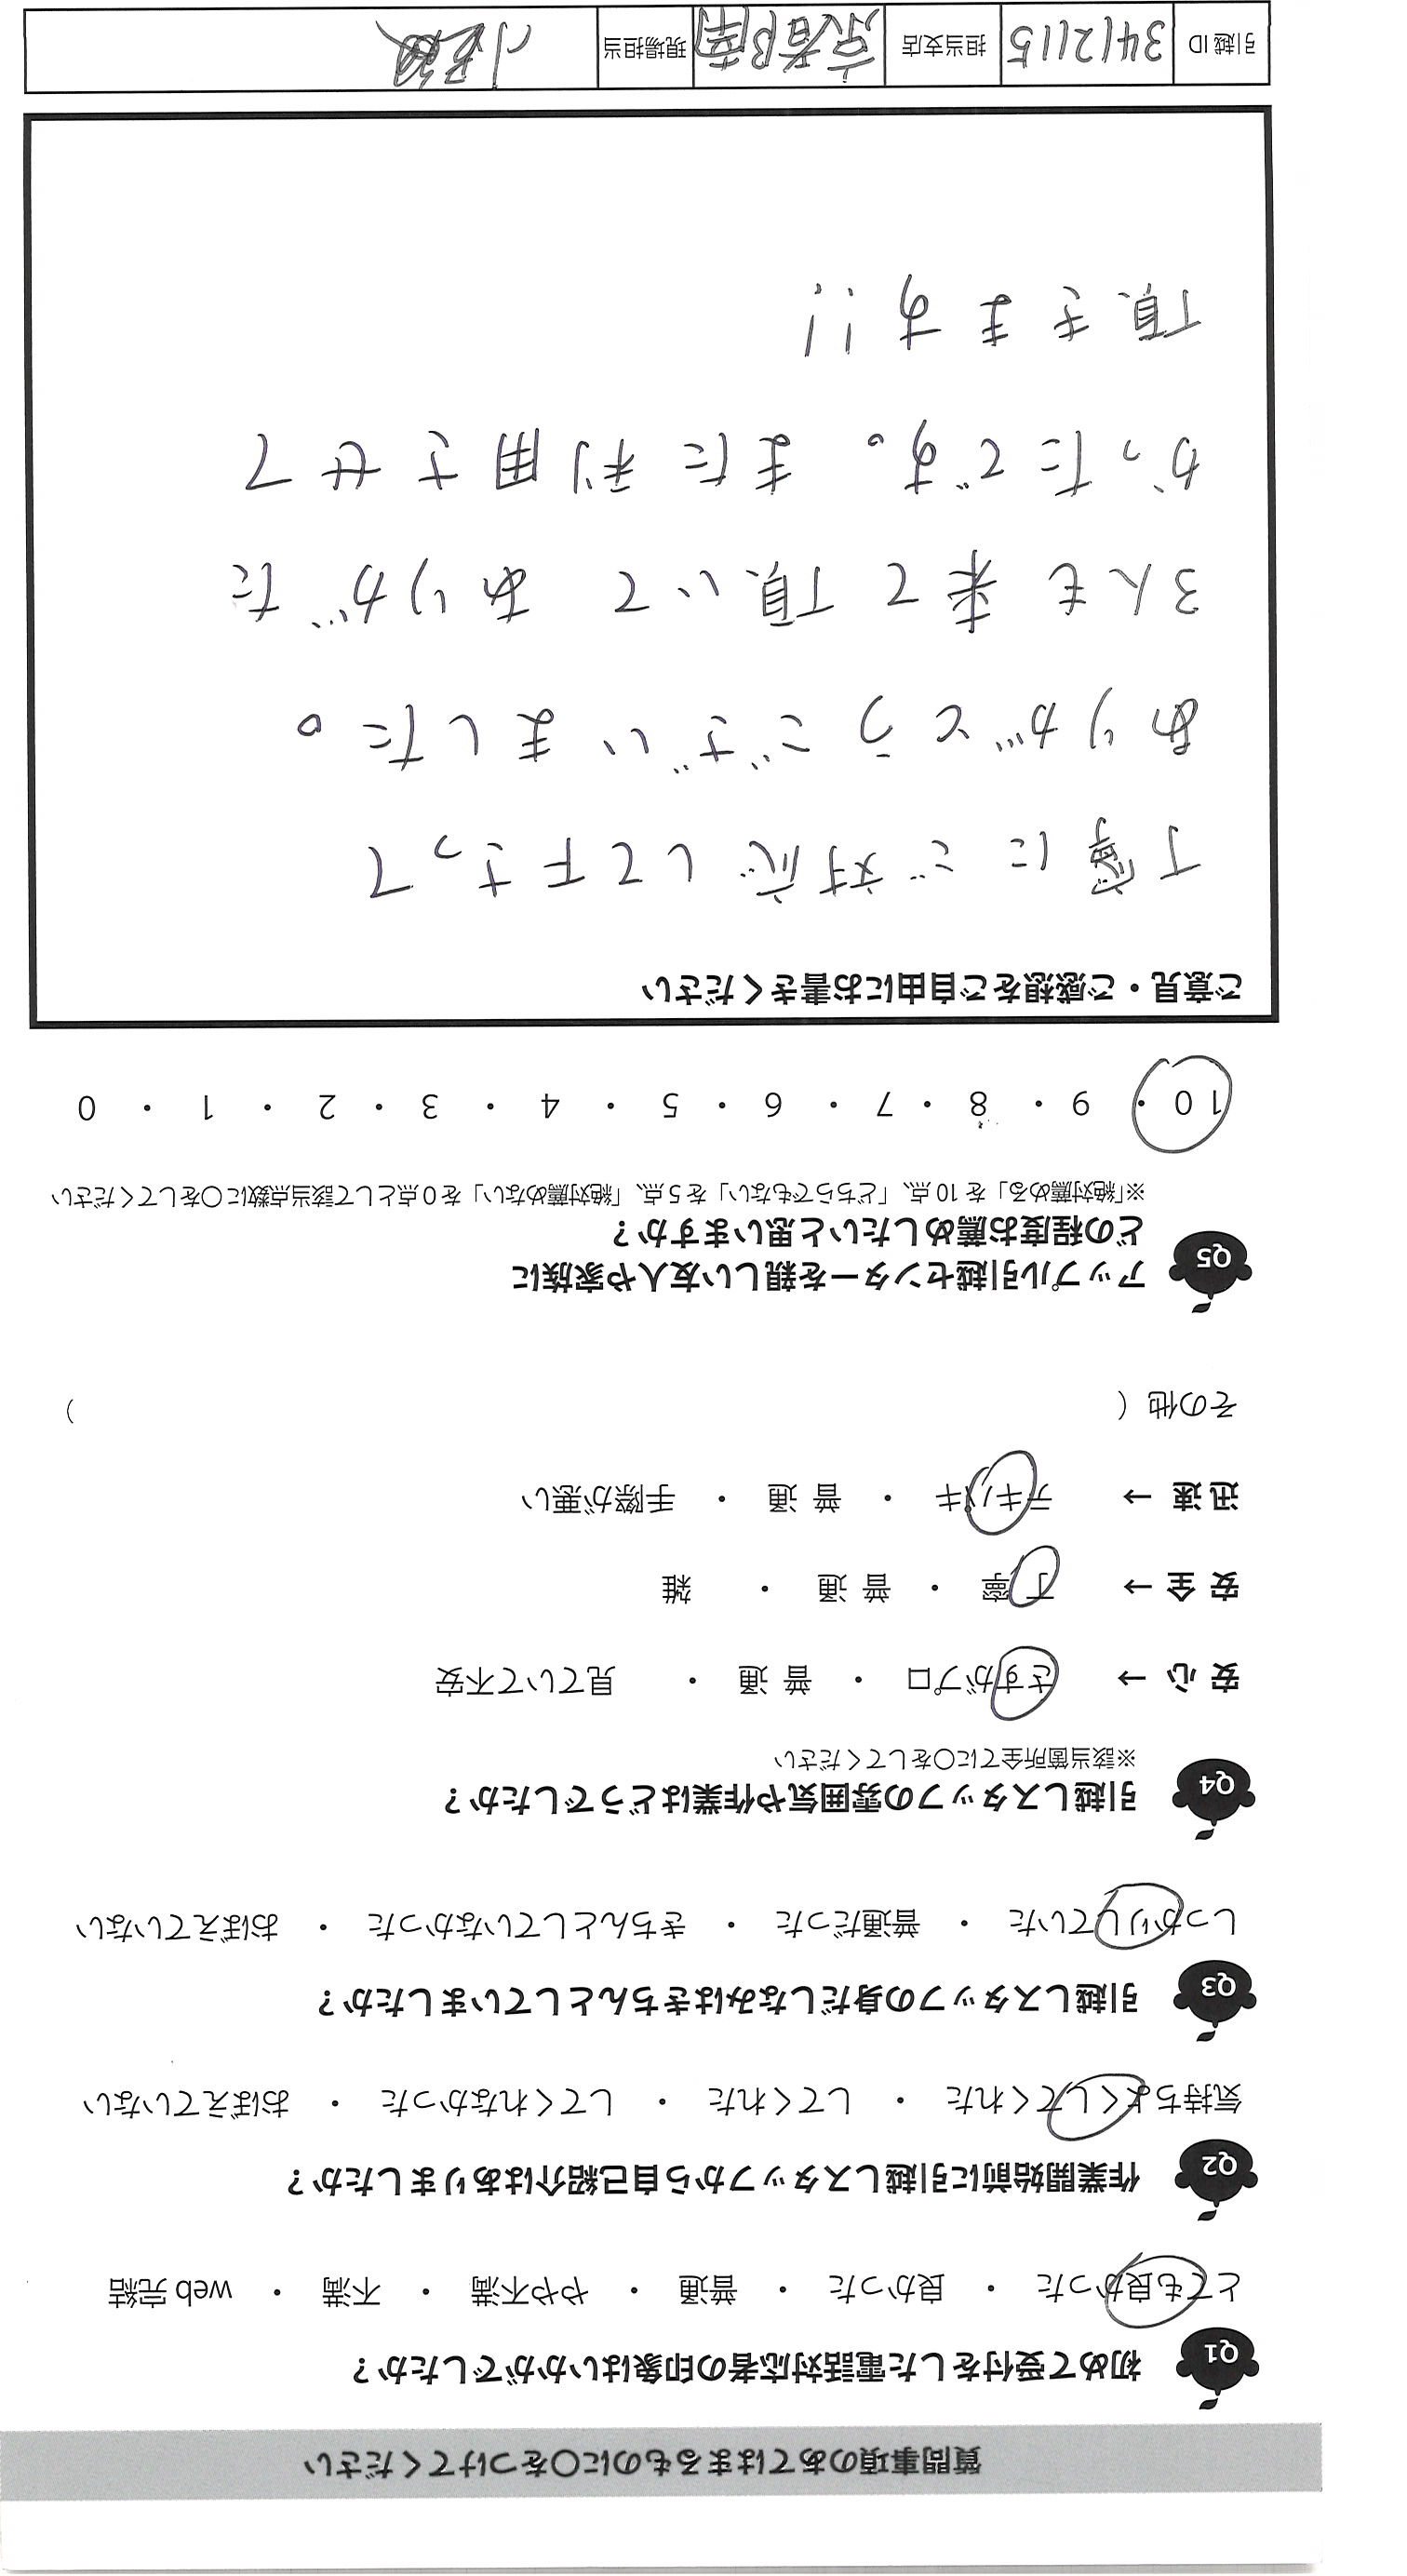 質問事項のあてはまるものに○をつけてください
Q1 初めて受付をした電話対応者の印象はいかがでしたか？
とても良かった ・ 良かった ・ 普通 ・ やや不満 ・ 不満 ・ web 完結
Q2 作業開始前に引越しスタッフから自己紹介はありましたか？
気持ちよくしてくれた ・ してくれた ・ してくれなかった ・ おぼえていない
Q3 引越しスタッフの身だしなみはきちんとしていましたか？
しっかりしていた ・ 普通だった ・ きちんとしていなかった ・ おぼえていない
Q4 引越しスタッフの雰囲気や作業はどうでしたか？
※該当箇所全てに○をしてください
安 心 → さすがプロ ・ 普 通 ・ 見ていて不安
安 全 → 丁 寧 ・ 普 通 ・ 雑
迅 速 → テキパキ ・ 普 通 ・ 手際が悪い
その他（ ）
Q5 アップル引越センターを親しい友人や家族に
どの程度お薦めしたいと思いますか？
※「絶対薦める」を 10 点、「どちらでもない」を 5 点、「絶対薦めない」を 0 点として該当点数に○をしてください
10 ・ 9 ・ 8 ・ 7 ・ 6 ・ 5 ・ 4 ・ 3 ・ 2 ・ 1 ・ 0
ご意見・ご感想をご自由にお書きください
丁寧にご対応して下さって
ありがとうございました。
3人も来て頂いて ありがた
かったです。また利用させて
頂きます!!
引越 ID 3412115 担当支店 京都南 現場担当